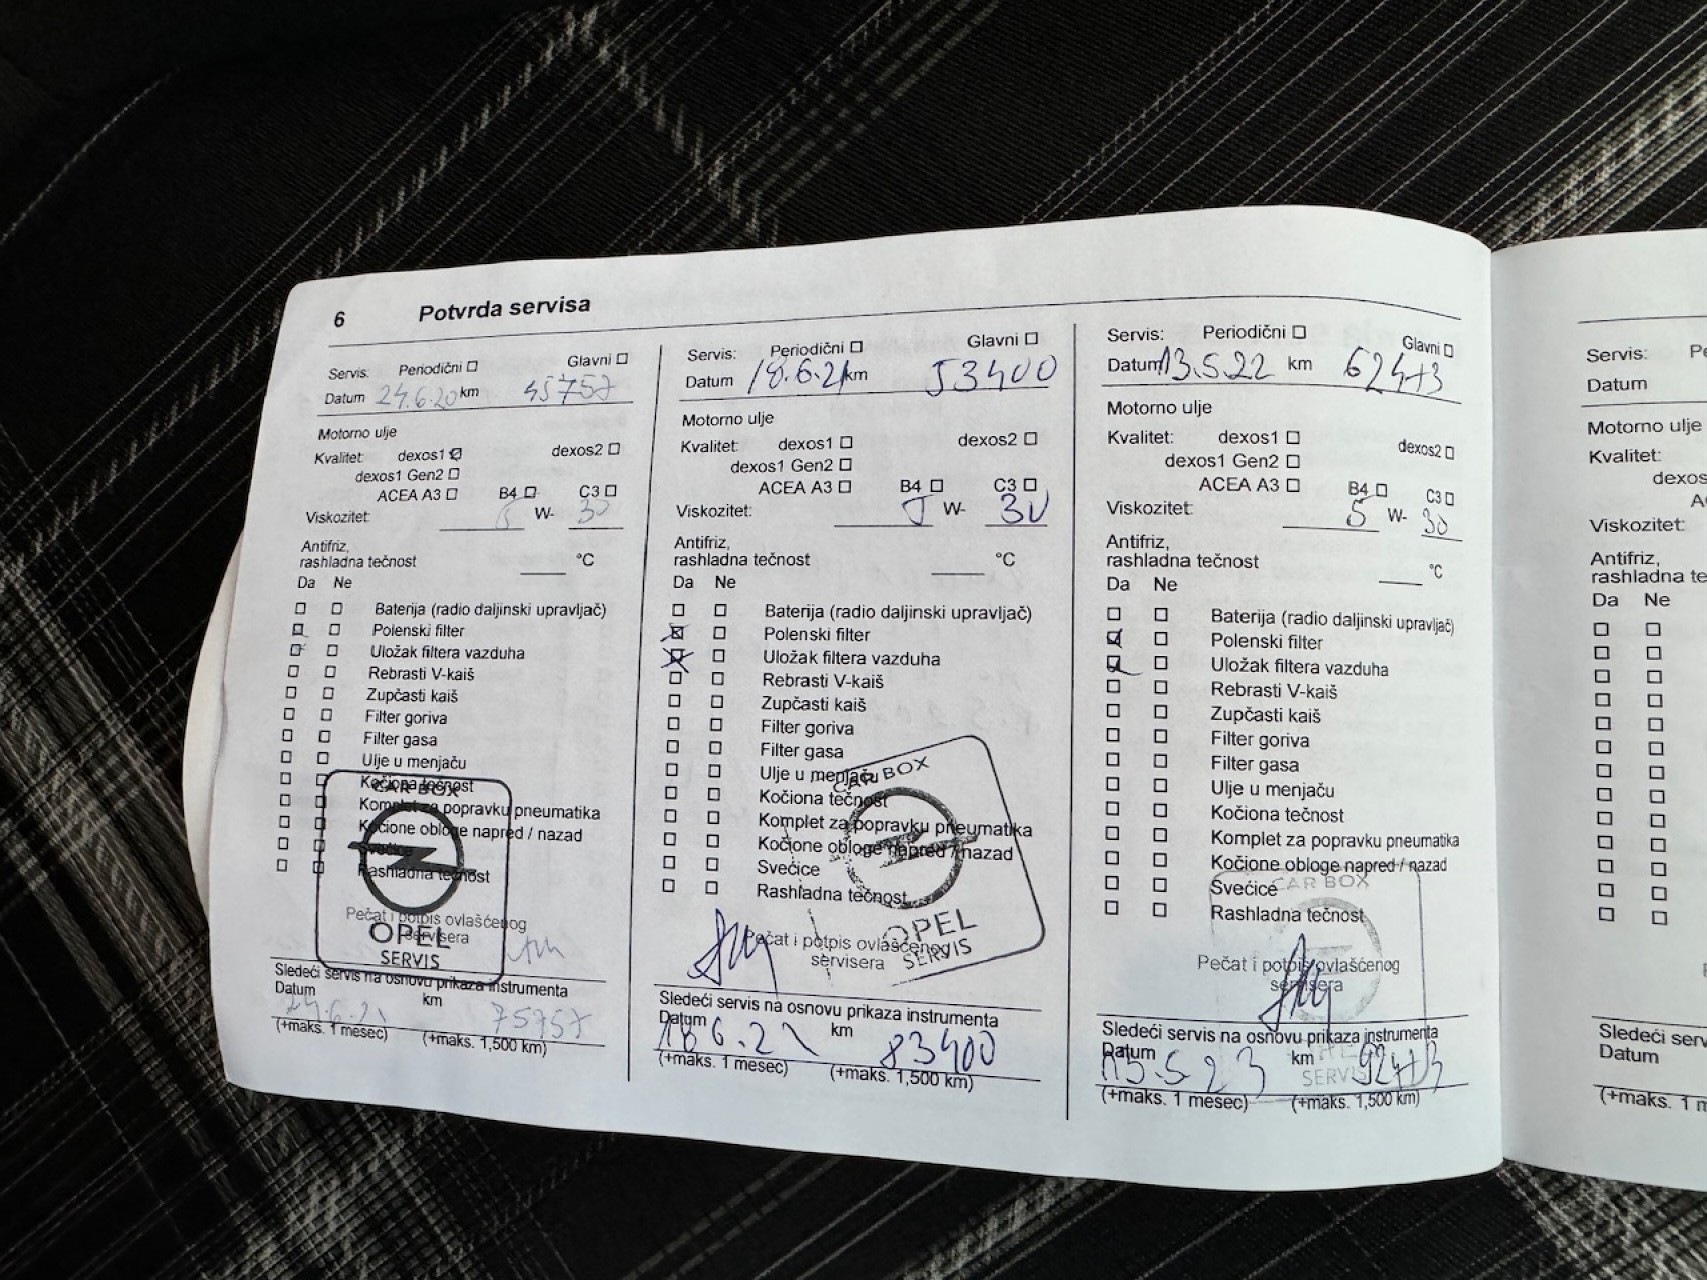 6 Potvrda servisa
Servis: Periodični Glavni
Datum 24.6.20 km 45757
Motorno ulje
Kvalitet: dexos1 dexos2
dexos1 Gen2
ACEA A3 B4 C3
Viskozitet: 5 W- 30
Antifriz,
rashladna tečnost °C
Da Ne
Baterija (radio daljinski upravljač)
Polenski filter
Uložak filtera vazduha
Rebrasti V-kaiš
Zupčasti kaiš
Filter goriva
Filter gasa
Ulje u menjaču
Kočiona tečnost
Komplet za popravku pneumatika
Kočione obloge napred / nazad
Svećice
Rashladna tečnost
CAR BOX
OPEL
SERVIS
Pečat i potpis ovlašćenog
servisera
Sledeći servis na osnovu prikaza instrumenta
Datum 24.6.21 km 75757
(+maks. 1 mesec) (+maks. 1,500 km)
Servis: Periodični Glavni
Datum 18.6.21 km 53400
Motorno ulje
Kvalitet: dexos1 dexos2
dexos1 Gen2
ACEA A3 B4 C3
Viskozitet: 5 W- 30
Antifriz,
rashladna tečnost °C
Da Ne
Baterija (radio daljinski upravljač)
Polenski filter
Uložak filtera vazduha
Rebrasti V-kaiš
Zupčasti kaiš
Filter goriva
Filter gasa
Ulje u menjaču
Kočiona tečnost
Komplet za popravku pneumatika
Kočione obloge napred / nazad
Svećice
Rashladna tečnost
CAR BOX
OPEL
SERVIS
Pečat i potpis ovlašćenog
servisera
Sledeći servis na osnovu prikaza instrumenta
Datum km 83400
(+maks. 1 mesec) (+maks. 1,500 km)
Servis: Periodični Glavni
Datum 13.5.22 km 62473
Motorno ulje
Kvalitet: dexos1 dexos2
dexos1 Gen2
ACEA A3 B4 C3
Viskozitet: 5 W- 30
Antifriz,
rashladna tečnost °C
Da Ne
Baterija (radio daljinski upravljač)
Polenski filter
Uložak filtera vazduha
Rebrasti V-kaiš
Zupčasti kaiš
Filter goriva
Filter gasa
Ulje u menjaču
Kočiona tečnost
Komplet za popravku pneumatika
Kočione obloge napred / nazad
Svećice
Rashladna tečnost
CAR BOX
SERVIS
Pečat i potpis ovlašćenog
servisera
Sledeći servis na osnovu prikaza instrumenta
Datum km 92473
(+maks. 1 mesec) (+maks. 1,500 km)
Servis: Pe
Datum
Motorno ulje
Kvalitet:
dexos
A
Viskozitet:
Antifriz,
rashladna te
Da Ne
Sledeći serv
Datum
(+maks. 1 m